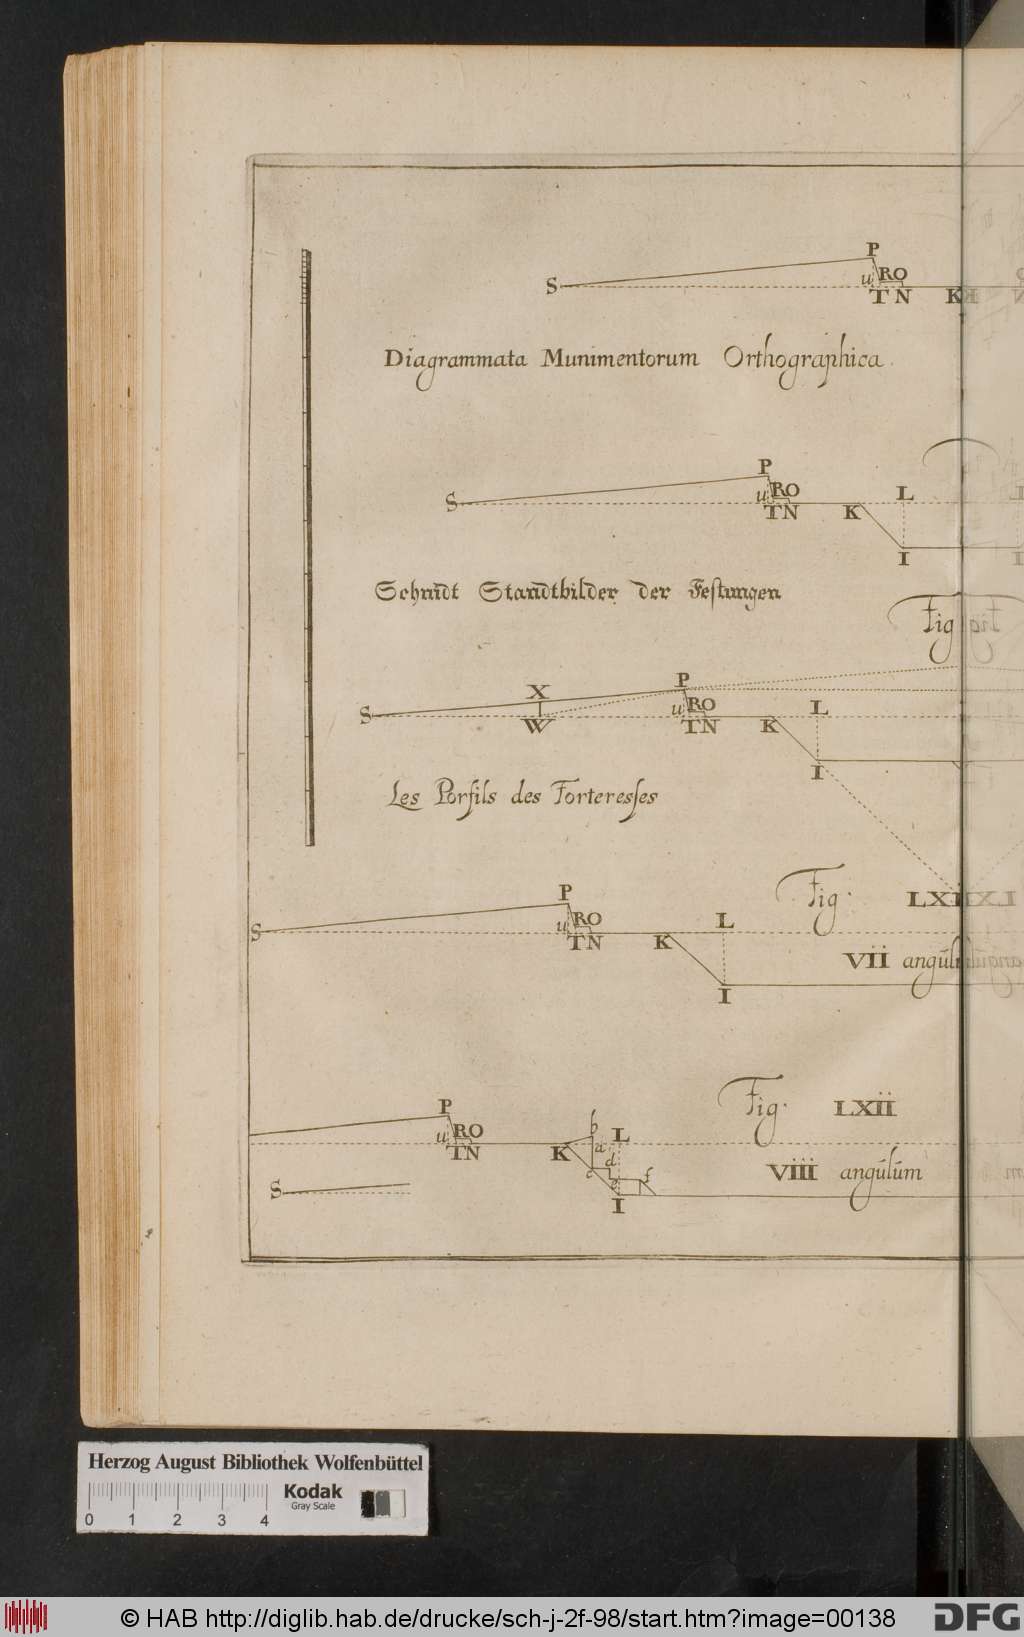 P
S
u RO
T N K
Diagrammata Munimentorum Orthographica.
P
S
u RO
T N K
L
I
I
Schnidt Standtbilder der Festungen
Fig
X
P
S
W
u RO
T N K
L
I
Les Porfils des Forteresses
P
S
u RO
T N K
L
I
Fig.
VII
P
u RO
T N K
b
a
L
d
c
e
f
I
S
Fig. LXII
VIII angúlúm
Herzog August Bibliothek Wolfenbüttel
Kodak
Gray Scale
0 1 2 3 4
© HAB http://diglib.hab.de/drucke/sch-j-2f-98/start.htm?image=00138
DFG